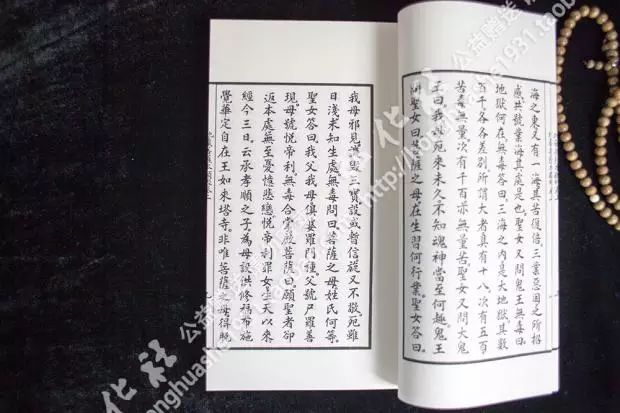 海之東又有一海其苦復倍三業惡因之所招
感共號業海其處是也。聖女又問鬼王無毒曰。
地獄何在無毒答曰三海之內是大地獄其數
百千各各差別所謂大者具有十八次有五百
苦毒無量次有千百亦無量苦聖女又問大鬼
王曰我母死來未久不知魂神當至何趣鬼王
問聖女曰菩薩之母在生習何行業聖女答曰。
我母邪見譏毀三寶設或暫信旋又不敬死雖
日淺未知生處無毒問曰菩薩之母姓氏何等。
聖女答曰我父我母俱婆羅門種父號尸羅善
現母號悅帝利無毒合掌啟菩薩曰願聖者卻
返本處無至憂憶悲戀悅帝利罪女生天以來
經今三日云承孝順之子為母設供修福布施
覺華定自在王如來塔寺非唯菩薩之母得脫
公益赠送
化社